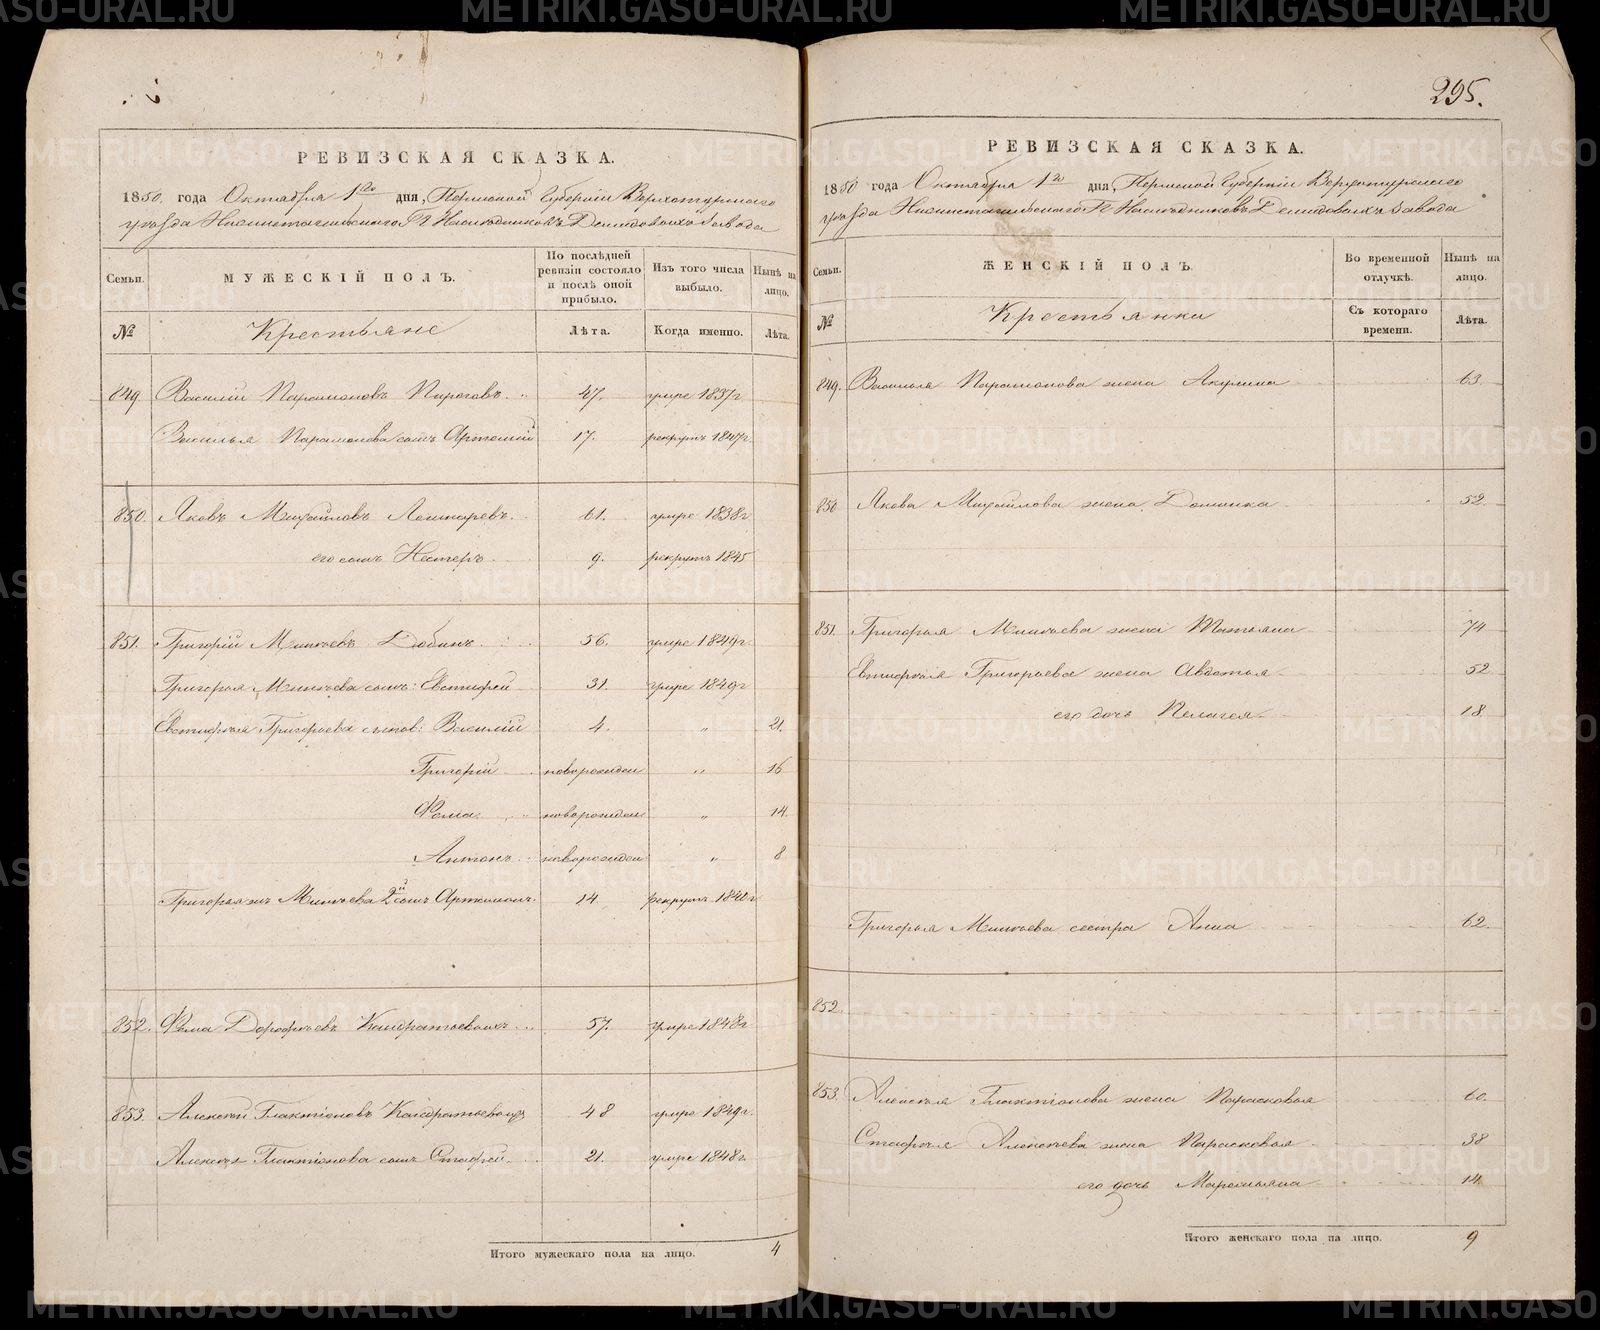 РЕВИЗСКАЯ СКАЗКА.
1850 года Октября 1го дня, Пермской Губерніи Верхотурскаго
уѣзда Нижнетагильскаго Наслѣдниковъ Демидовыхъ Завода
Семьи.
МУЖЕСКІЙ ПОЛЪ.
По послѣдней ревизіи состояло и послѣ оной прибыло.
Изъ того числа выбыло.
Нынѣ на лицо.
№
Крестьяне
Лѣта.
Когда именно.
Лѣта.
849 Василій Парамоновъ Пироговъ 47. умре 1837г
Василья Парамонова сынъ Артемій 17. рекрутъ 1847г.
850 Яковъ Михайловъ 61. умре 1838г
его сынъ Нестеръ 9. рекрутъ 1845
851. Григорій Минѣевъ 56. умре 1849г.
Григорья Минѣева сынъ: Евстифей 31. умре 1849г
Евстифѣя Григорьева сынов: Василій 4. " 21.
Григорій новорожден " 16
Фома новорожден " 14.
Антонъ новорожден " 8
Григорья жъ Минѣева 2й сынъ Артамонъ 14. рекрутъ
852. Фома Дорофѣевъ Кондратьевыхъ 57. умре 1848г
853. Алексѣй Галактіоновъ Кондратьевыхъ 48 умре 1849г.
Алексѣя Галактіонова сынъ Стафей 21. умре 1848г.
Итого мужескаго пола на лицо. 4
295.
РЕВИЗСКАЯ СКАЗКА.
1850 года Октября 1го дня, Пермской Губерніи Верхотурскаго
уѣзда Нижнетагильскаго Наслѣдниковъ Демидовыхъ Завода
Семьи.
ЖЕНСКІЙ ПОЛЪ.
Во временной отлучкѣ.
Нынѣ на лицо.
№
Крестьянки
Съ котораго времени.
Лѣта.
849. Василья Парамонова жена Акулина 63.
850 Якова Михайлова жена Домника 52.
851. Григорья Минѣева жена Татьяна 74
Евтифѣя Григорьева жена Авдотья 52
его дочь Пелагея 18
Григорья Минѣева сестра Анна 62.
852.
853. Алексѣя Галактіонова жена Парасковья 60.
Стафѣя Алексѣева жена Парасковья 38
его дочь Маремьяна 14.
Итого женскаго пола на лицо. 9
METRIKI.GASO-URAL.RU